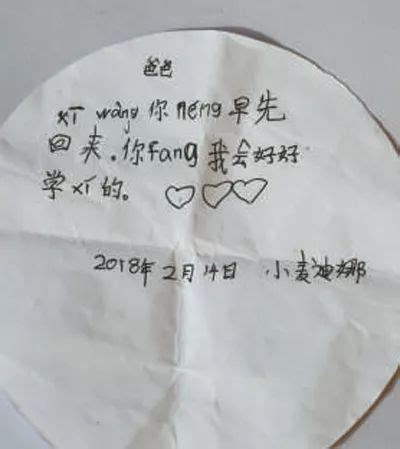 爸爸
xī wàng你néng早先
回来.你fang我会好好
学xī的。
2018年2月14日 小麦迪娜